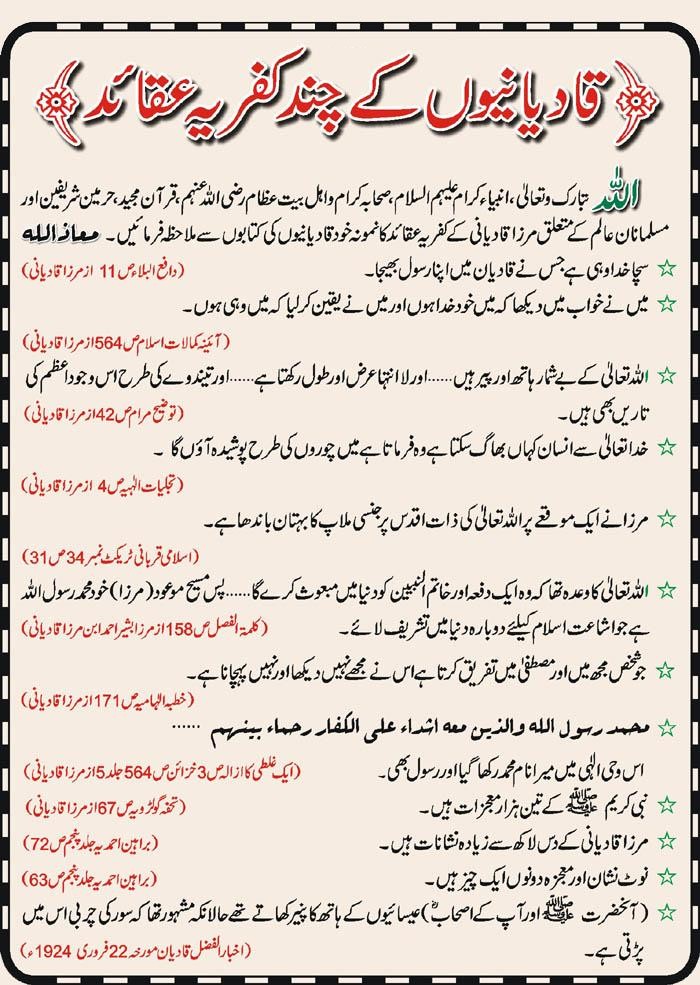 قادیانیوں کے چند کفریہ عقائد
اللہ تبارک وتعالیٰ، انبیاء کرام علیہم السلام، صحابہ کرام واہل بیت عظام رضی اللہ عنہم، قرآن مجید، حرمین شریفین اور
مسلمانان عالم کے متعلق مرزا قادیانی کے کفریہ عقائد کا نمونہ خود قادیانیوں کی کتابوں سے ملاحظہ فرمائیں۔ معاذ اللہ
☆ سچا خدا وہی ہے جس نے قادیان میں اپنا رسول بھیجا۔ (دافع البلاء ص 11 از مرزا قادیانی)
☆ میں نے خواب میں دیکھا کہ میں خود خدا ہوں اور میں نے یقین کر لیا کہ میں وہی ہوں۔
(آئینہ کمالات اسلام ص 564 از مرزا قادیانی)
☆ اللہ تعالیٰ کے بے شمار ہاتھ اور پیر ہیں......اور لا انتہا عرض اور طول رکھتا ہے......اور تیندوے کی طرح اس وجود اعظم کی
تاریں بھی ہیں۔ (توضیح مرام ص 42 از مرزا قادیانی)
☆ خدا تعالیٰ سے انسان کہاں بھاگ سکتا ہے وہ فرماتا ہے میں چوروں کی طرح پوشیدہ آؤں گا ۔
(تجلیات الٰہیہ ص 4 از مرزا قادیانی)
☆ مرزا نے ایک موقعے پر اللہ تعالیٰ کی ذات اقدس پر جنسی ملاپ کا بہتان باندھا ہے۔
(اسلامی قربانی ٹریکٹ نمبر 34 ص 31)
☆ اللہ تعالیٰ کا وعدہ تھا کہ وہ ایک دفعہ اور خاتم النبیین کو دنیا میں مبعوث کرے گا......پس مسیح موعود (مرزا) خود محمد رسول اللہ
ہے جو اشاعت اسلام کیلئے دوبارہ دنیا میں تشریف لائے۔ (کلمۃ الفصل ص 158 از مرزا بشیر احمد ابن مرزا قادیانی)
☆ جو شخص مجھ میں اور مصطفیٰ میں تفریق کرتا ہے اس نے مجھے نہیں دیکھا اور نہیں پہچانا ہے۔
(خطبہ الہامیہ ص 171 از مرزا قادیانی)
☆ محمد رسول الله والذین معه اشداء علی الکفار رحماء بینهم ......
اس وحی الٰہی میں میرا نام محمد رکھا گیا اور رسول بھی۔ (ایک غلطی کا ازالہ ص 3 خزائن ص 564 جلد 5 از مرزا قادیانی)
☆ نبی کریم ﷺ کے تین ہزار معجزات ہیں۔ (تحفہ گولڑویہ ص 67 از مرزا قادیانی)
☆ مرزا قادیانی کے دس لاکھ سے زیادہ نشانات ہیں۔ (براہین احمدیہ جلد پنجم ص 72)
☆ نوٹ نشان اور معجزہ دونوں ایک چیز ہیں۔ (براہین احمدیہ جلد پنجم ص 63)
☆ (آنحضرت ﷺ اور آپ کے اصحابؓ) عیسائیوں کے ہاتھ کا پنیر کھاتے تھے حالانکہ مشہور تھا کہ سور کی چربی اس میں
پڑتی ہے۔ (اخبار الفضل قادیان مورخہ 22 فروری 1924ء)